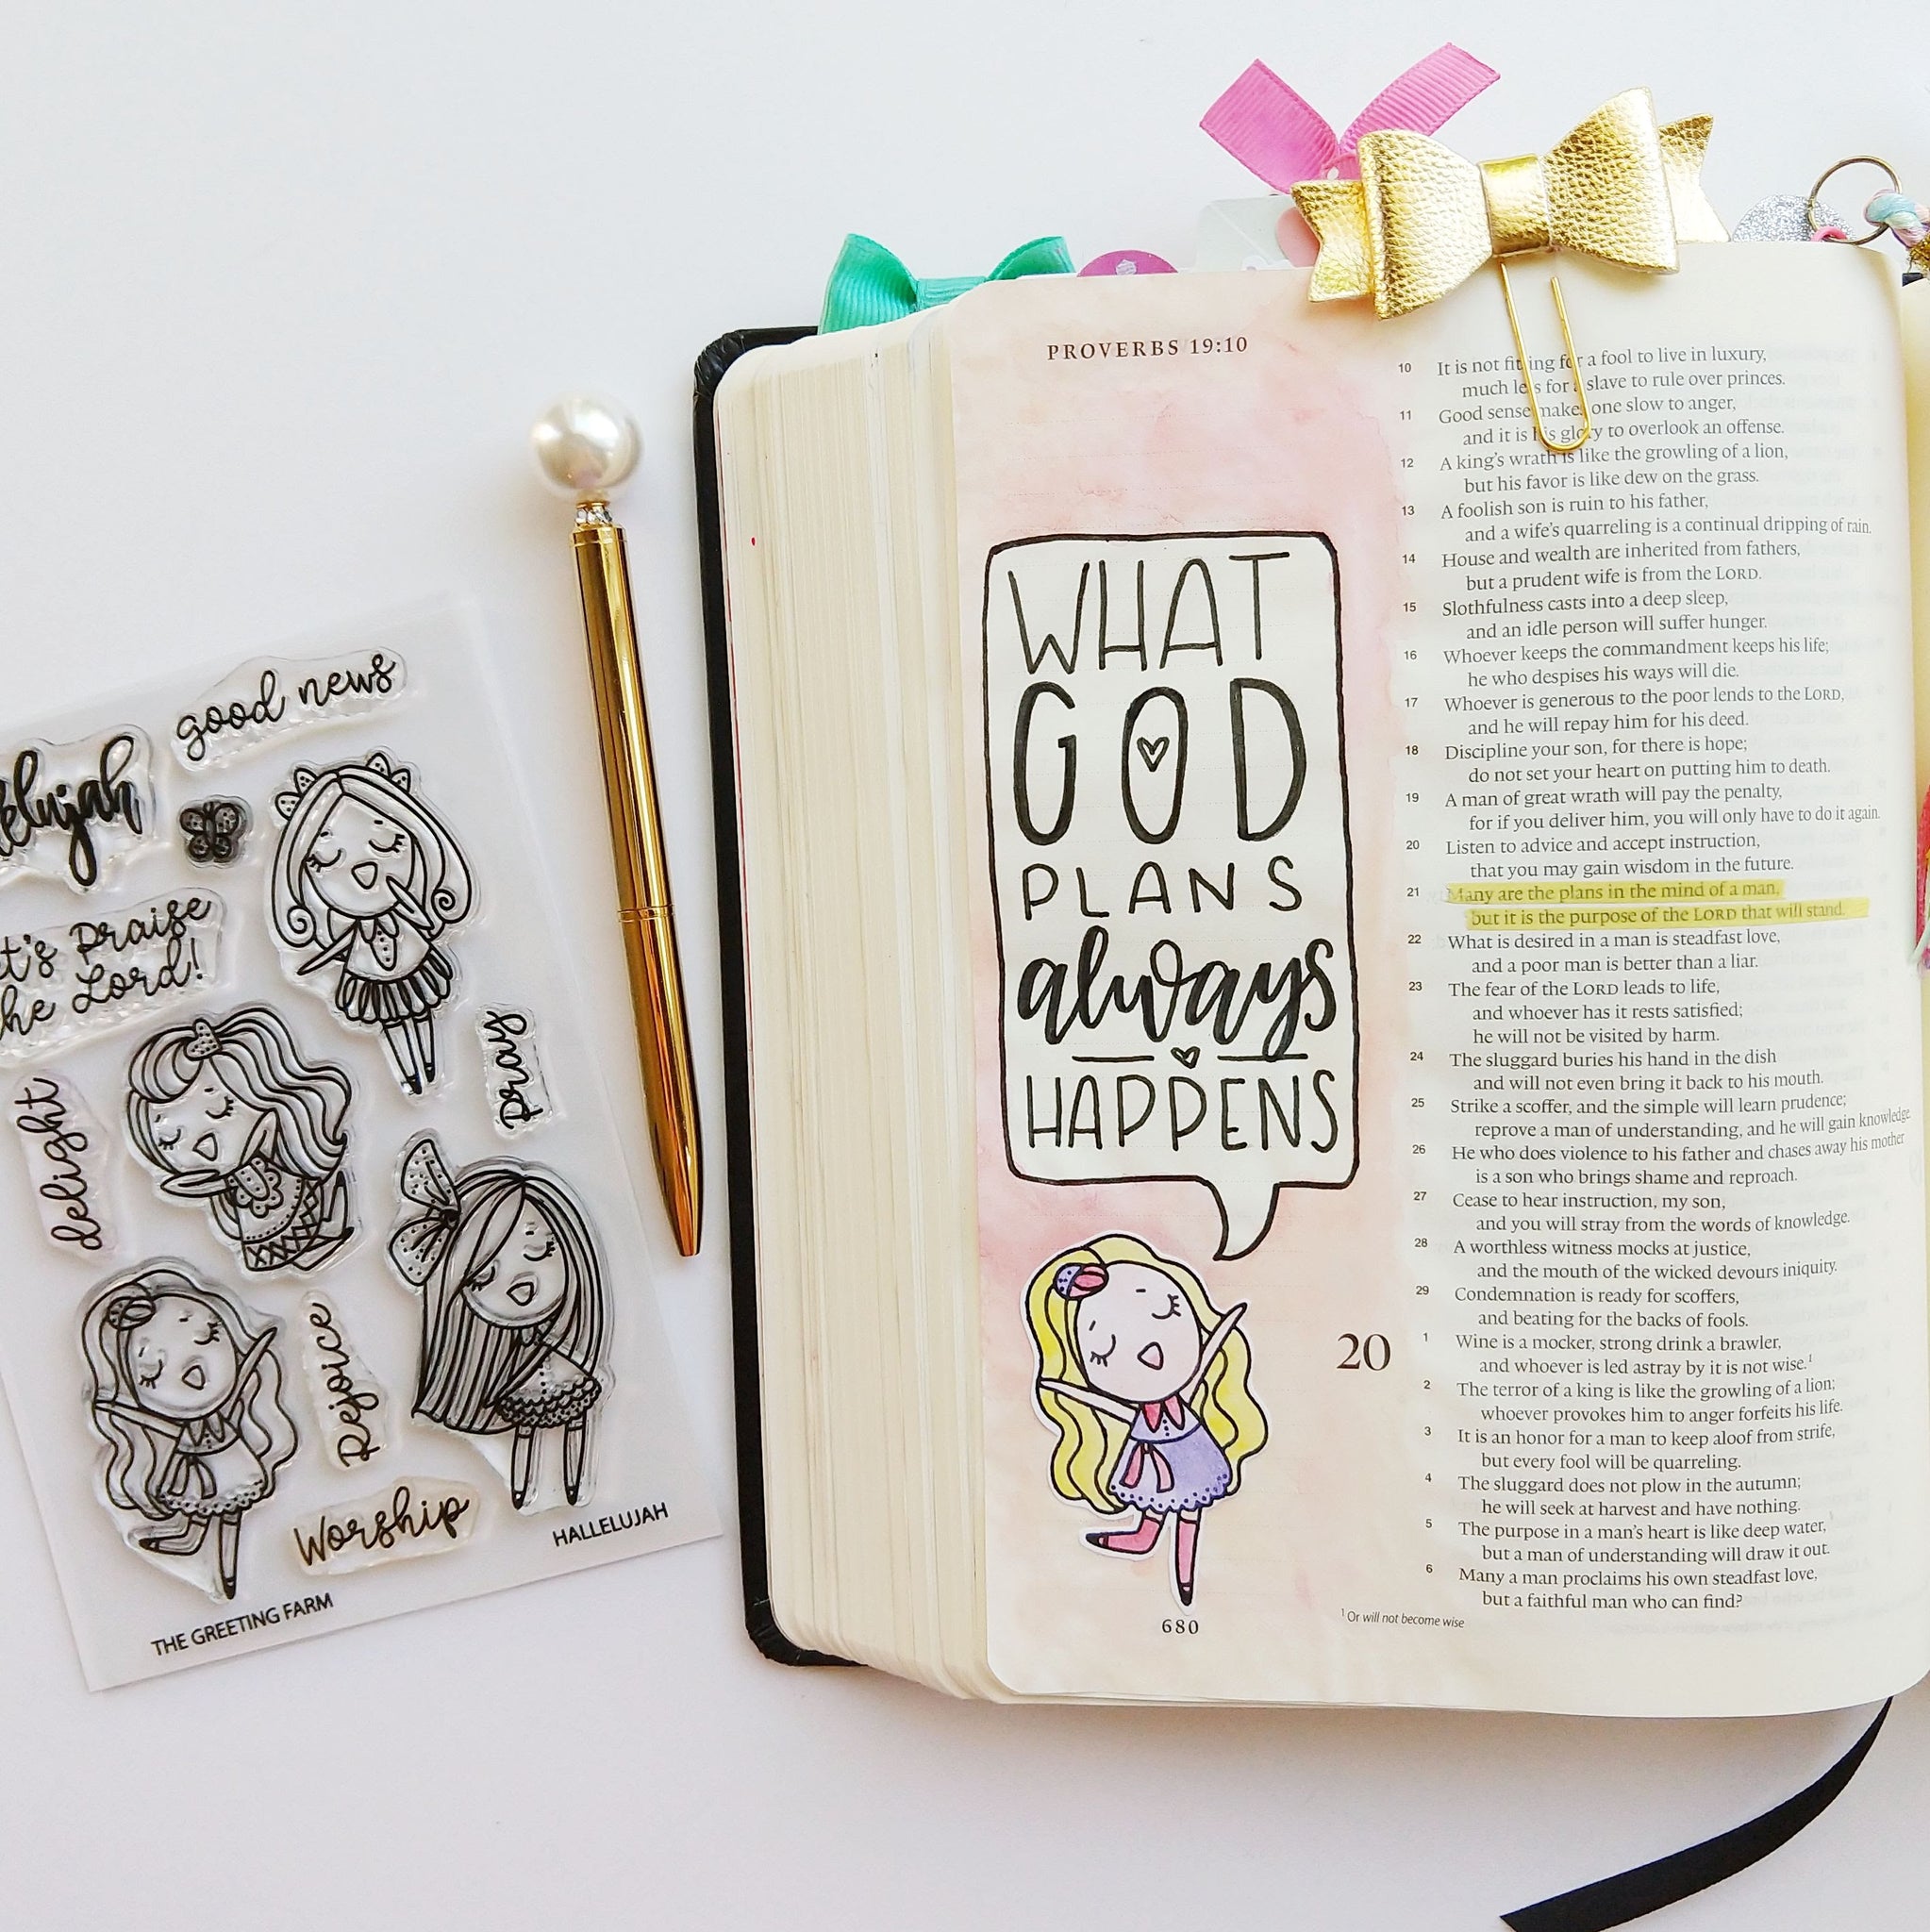 good news
Let's Praise
the Lord!
delight
pray
Rejoice
Worship
HALLELUJAH
THE GREETING FARM
PROVERBS 19:10
WHAT
GOD
PLANS
always
HAPPENS
680
10 It is not fitting for a fool to live in luxury,
much less for a slave to rule over princes.
11 Good sense makes one slow to anger,
and it is his glory to overlook an offense.
12 A king's wrath is like the growling of a lion,
but his favor is like dew on the grass.
13 A foolish son is ruin to his father,
and a wife's quarreling is a continual dripping of rain.
14 House and wealth are inherited from fathers,
but a prudent wife is from the LORD.
15 Slothfulness casts into a deep sleep,
and an idle person will suffer hunger.
16 Whoever keeps the commandment keeps his life;
he who despises his ways will die.
17 Whoever is generous to the poor lends to the LORD,
and he will repay him for his deed.
18 Discipline your son, for there is hope;
do not set your heart on putting him to death.
19 A man of great wrath will pay the penalty,
for if you deliver him, you will only have to do it again.
20 Listen to advice and accept instruction,
that you may gain wisdom in the future.
21 Many are the plans in the mind of a man,
but it is the purpose of the LORD that will stand.
22 What is desired in a man is steadfast love,
and a poor man is better than a liar.
23 The fear of the LORD leads to life,
and whoever has it rests satisfied;
he will not be visited by harm.
24 The sluggard buries his hand in the dish
and will not even bring it back to his mouth.
25 Strike a scoffer, and the simple will learn prudence;
reprove a man of understanding, and he will gain knowledge.
26 He who does violence to his father and chases away his mother
is a son who brings shame and reproach.
27 Cease to hear instruction, my son,
and you will stray from the words of knowledge.
28 A worthless witness mocks at justice,
and the mouth of the wicked devours iniquity.
29 Condemnation is ready for scoffers,
and beating for the backs of fools.
20 1 Wine is a mocker, strong drink a brawler,
and whoever is led astray by it is not wise.1
2 The terror of a king is like the growling of a lion;
whoever provokes him to anger forfeits his life.
3 It is an honor for a man to keep aloof from strife,
but every fool will be quarreling.
4 The sluggard does not plow in the autumn;
he will seek at harvest and have nothing.
5 The purpose in a man's heart is like deep water,
but a man of understanding will draw it out.
6 Many a man proclaims his own steadfast love,
but a faithful man who can find?
1 Or will not become wise